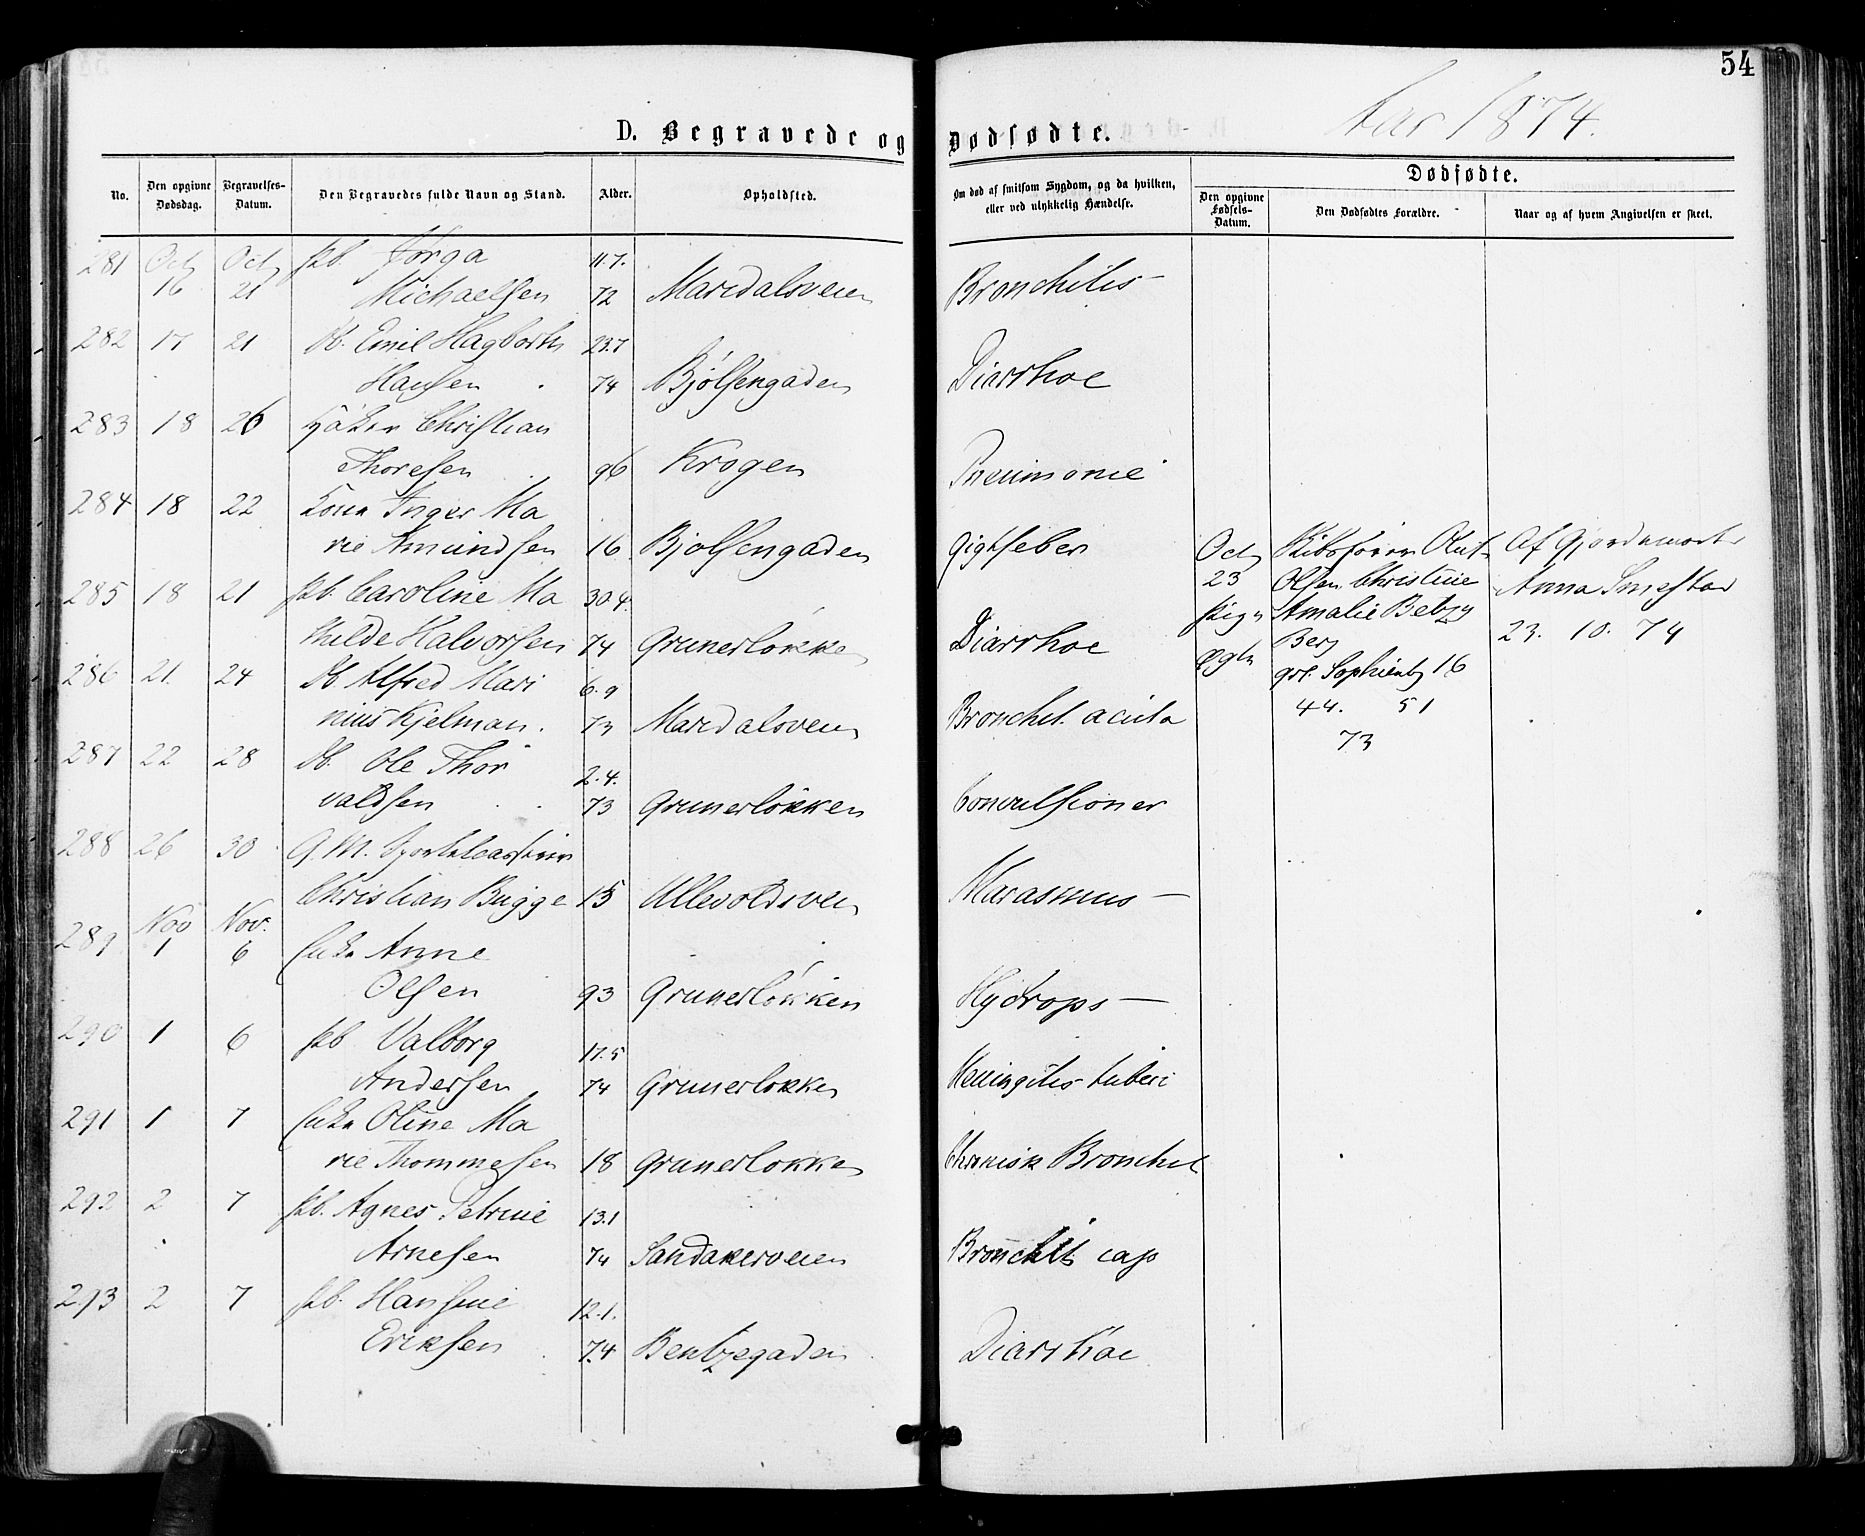 54
Aar 1874.
D. Begravede og Dødfødte.
No.
Den opgivne Dødsdag.
Begravelses-Datum.
Den Begravedes fulde Navn og Stand.
Alder.
Opholdsted.
Om død af smitsom Sygdom, og da hvilken, eller ved ulykkelig Hændelse.
Dødfødte.
Den opgivne Fødsels-Datum.
Den Dødfødtes Forældre.
Naar og af hvem Angivelsen er skeet.
281 Oct Oct pb. Jørga 11.7.
16 21 Michaelsen 72 Maridalsveien Bronchitis
282 17 21 Db. Emil Hagbarth 23.7
Hansen 74 Bjølsengaden Diarrhoe
283 18 26 Christian
Thoresen 96 Krogen Pneumonie
284 18 22 Kone Inger Ma
rie Amundsen 16 Bjølsengaden Gigtfeber
285 18 21 pb. Caroline Ma 30.4.
thilde Halvorsen 74 Grunerløkken Diarrhoe
286 21 24 Db Alfred Mari 6.9
nius Kjelman. 73 Maridalsveien Bronchit. acuta
287 22 28 Db. Ole Thor 2.4.
valdsen 73 Grunerløkken Convulsioner
288 26 30 G. M.
Christian Bugge 15 Ullevoldsveien Marasmus
Nov Nov.
289 1 6 Enke Anne
Olsen 93 Grunerløkken Hydrops
290 1 6 pb Valborg 17.5
Andersen 74 Grunerløkken Meningitis tuberc
291 1 7 Enke Oline Ma
rie Thommesen 18 Grunerløkken Chronisk Bronchit
292 2 7 pb. Agnes Petrine 13.1
Arnesen 74 Sandakerveien Bronchit cap
293 2 7 pb. Hansine 12.1.
Eriksen 74 Bentzegaden Diarrhoe
Oct Skibsfører Oluf Af Gjordemoder
23 Olsen, Christine Anna Smestad
Pige Amalie Betzy 23. 10. 74
ægte Berg
grl. Sophienbg 16
44. 51
73